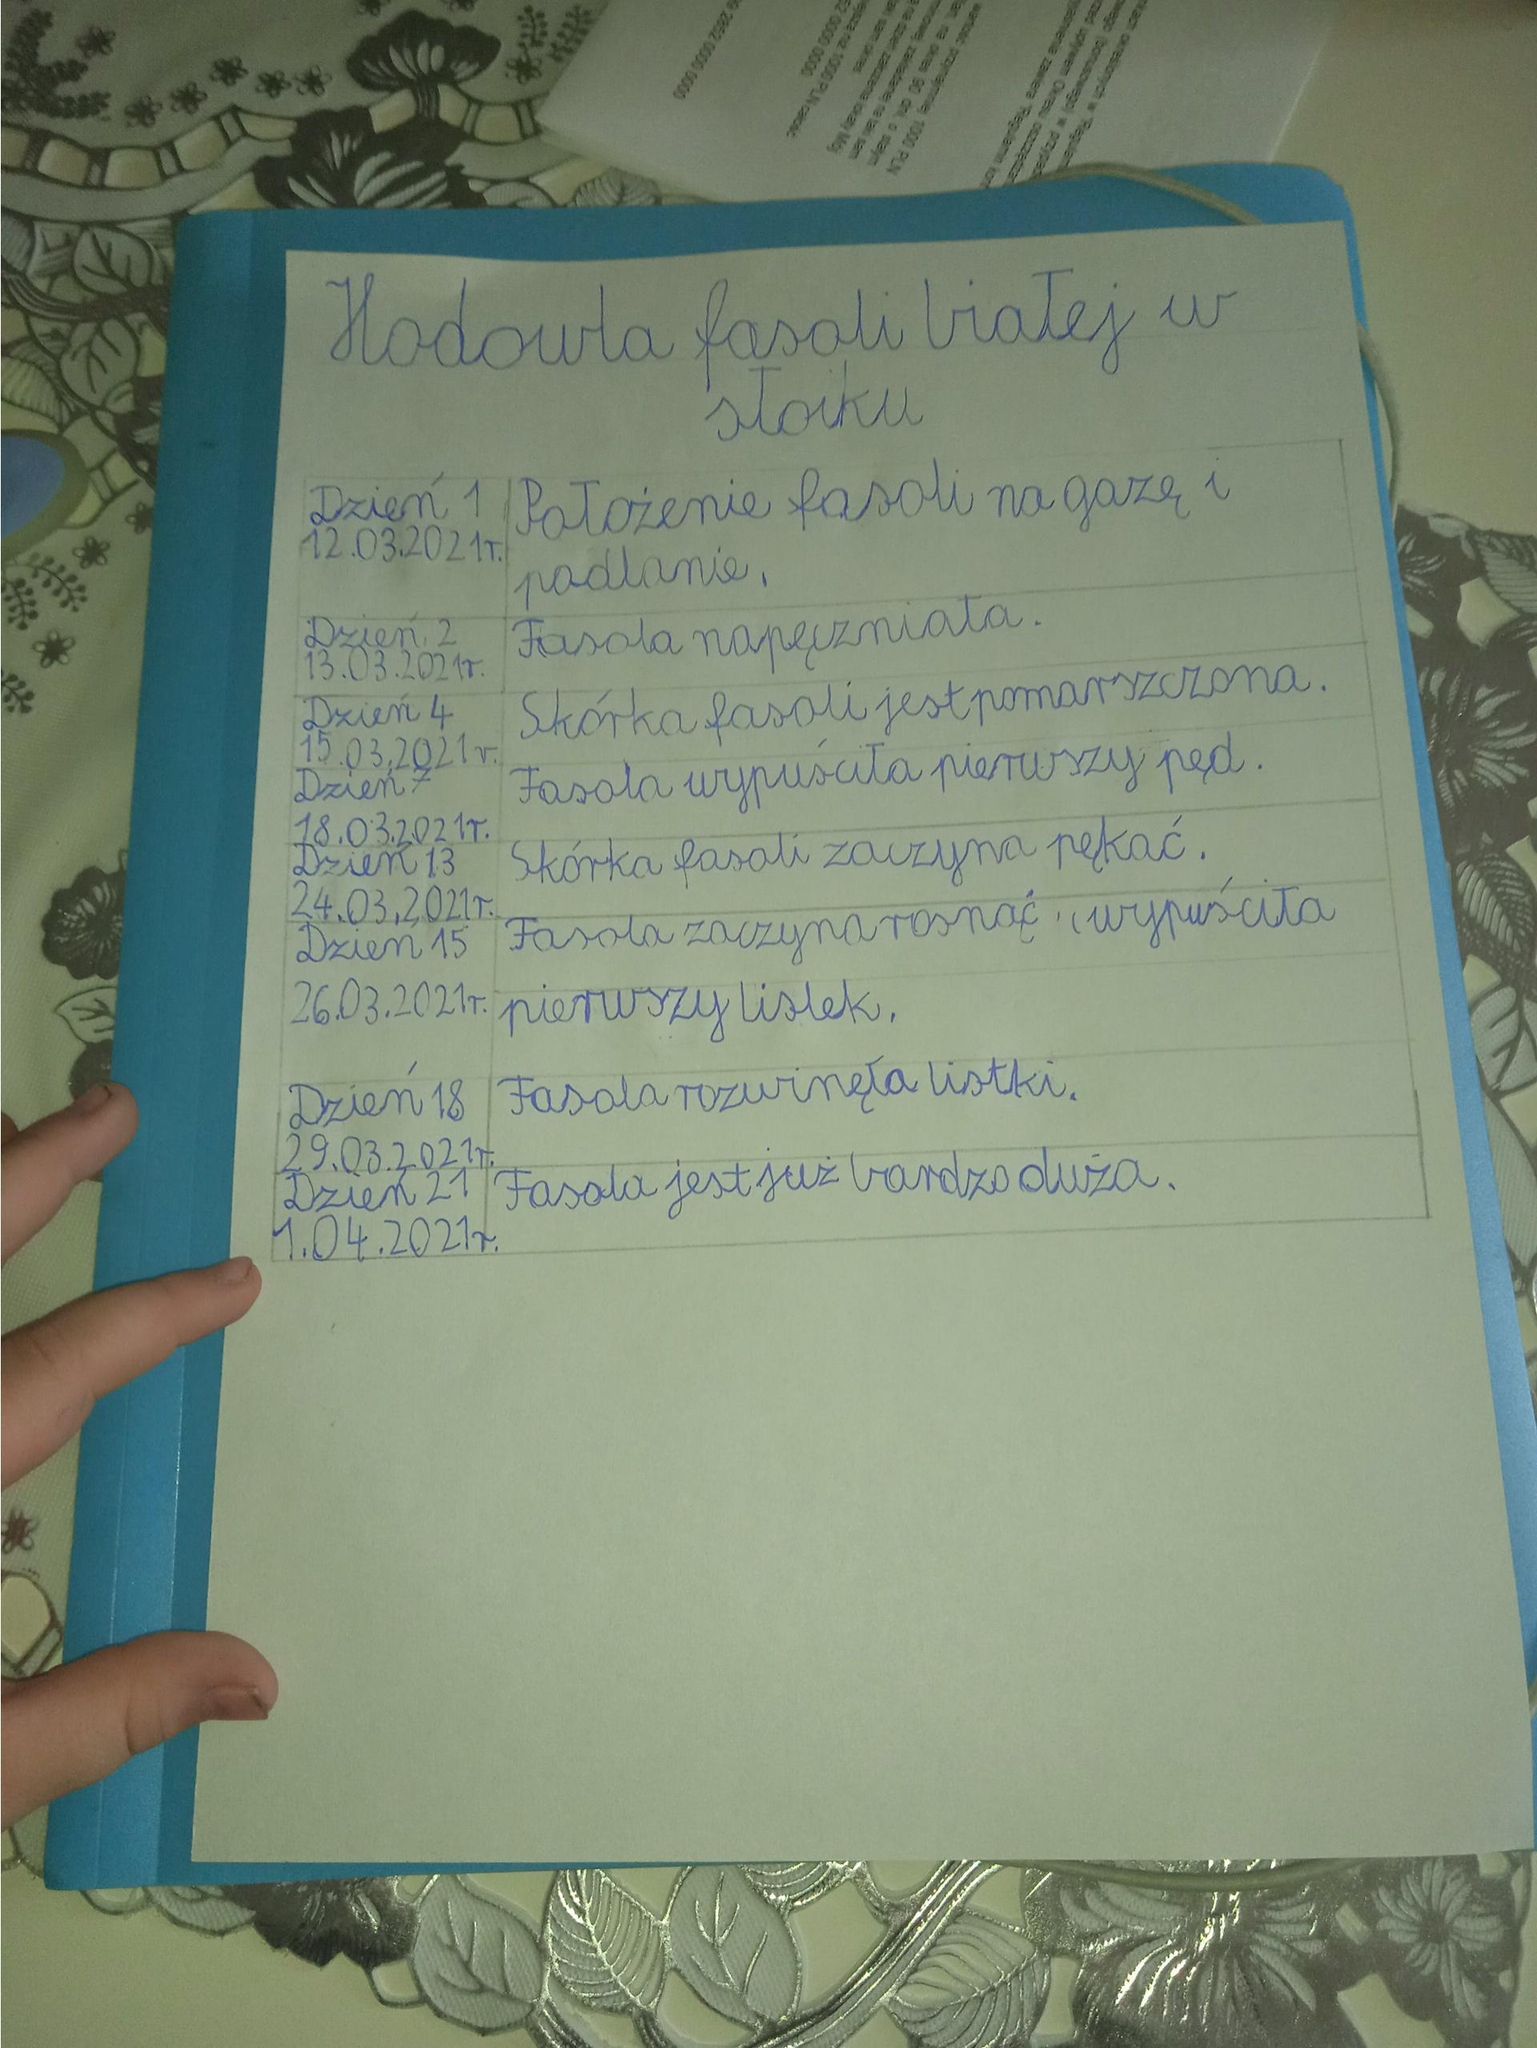 Hodowla fasoli białej w
słoiku
Dzień 1
12.03.2021r.
Położenie fasoli na gazę i
podlanie.
Dzień 2
13.03.2021r.
Fasola napęczniała.
Dzień 4
15.03.2021r.
Skórka fasoli jest pomarszczona.
Dzień 7
18.03.2021r.
Fasola wypuściła pierwszy pęd.
Dzień 13
24.03.2021r.
Skórka fasoli zaczyna pękać.
Dzień 15
26.03.2021r.
Fasola zaczyna rosnąć i wypuściła
pierwszy listek.
Dzień 18
29.03.2021r.
Fasola rozwinęła listki.
Dzień 21
1.04.2021r.
Fasola jest już bardzo duża.